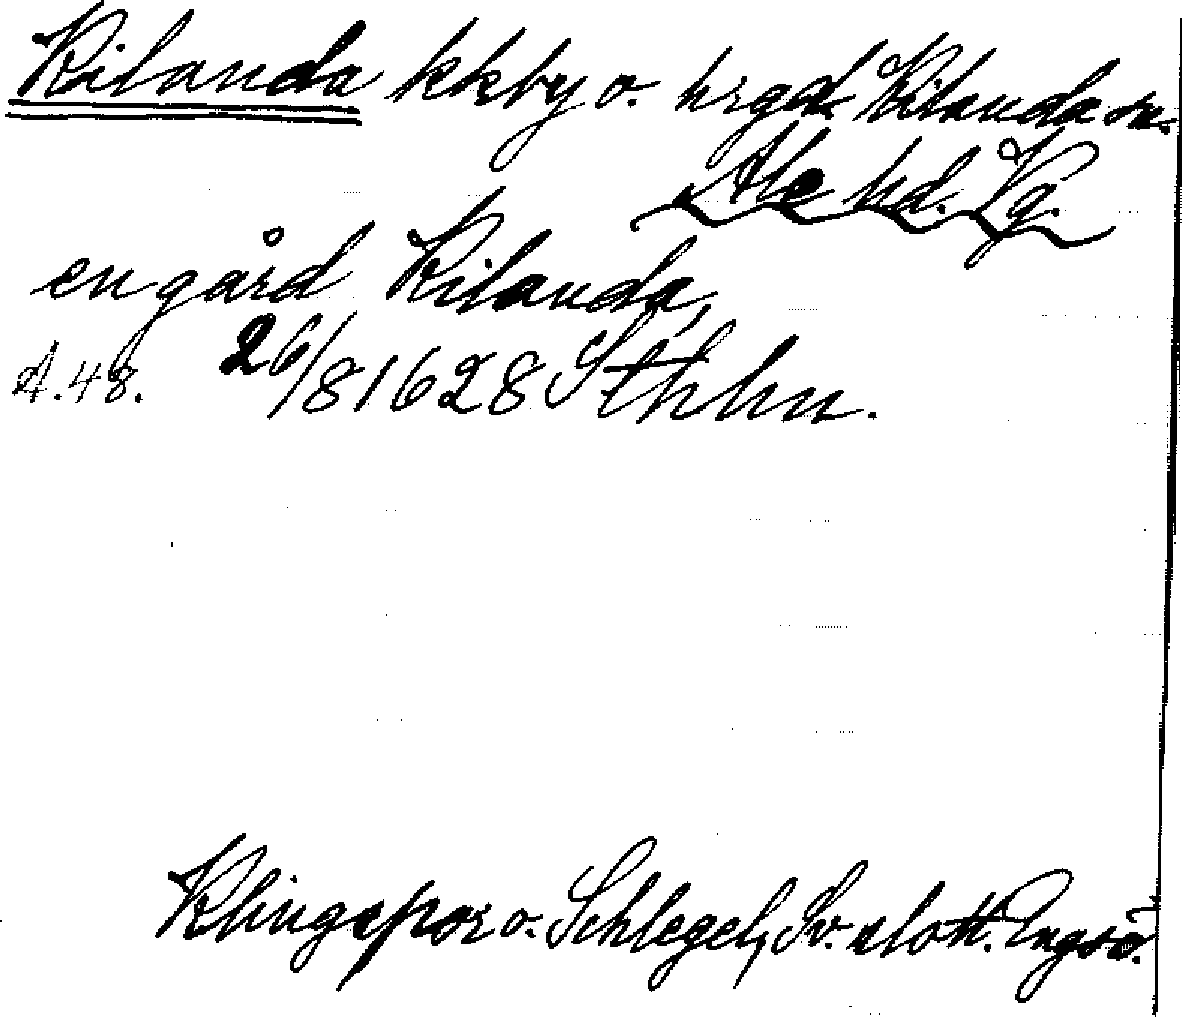 Kilanda kkby o. hrgd. Kilanda sn.
Ale hd. Vg.
en gård Kilanda,
A.48. 26/8 1628 Sthlm.
Klingspor o. Schlegel, Sv. slott. Engsö.